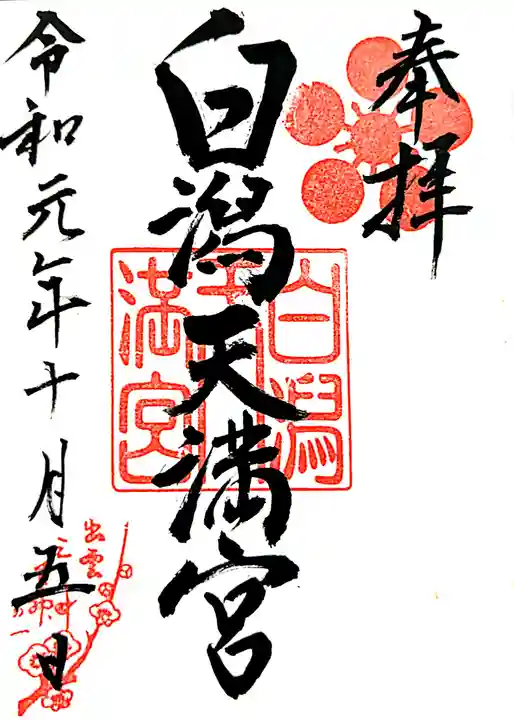 奉拝
白潟天満宮
白潟天満宮
令和元年十月五日
出雲